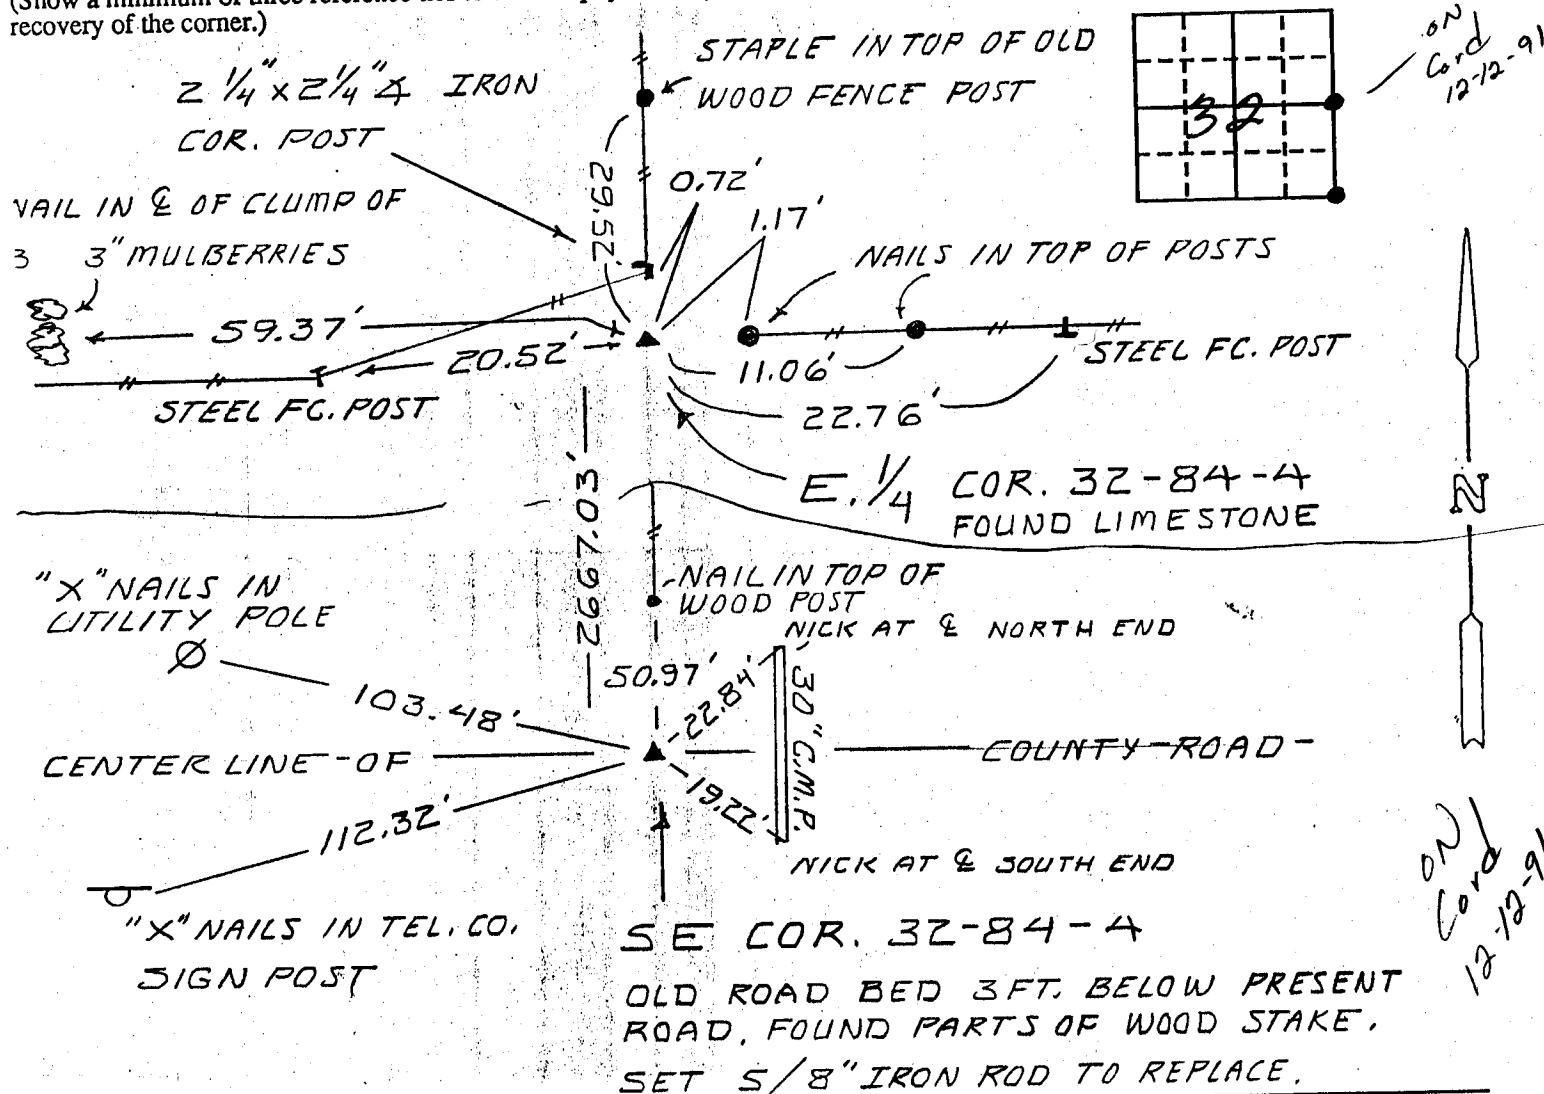 recovery of the corner.)
STAPLE IN TOP OF OLD
WOOD FENCE POST
2 1/4" x 2 1/4" ∡ IRON
COR. POST
32
ON
Cord
12-12-91
29.52'
0.72'
1.17'
NAIL IN ℄ OF CLUMP OF
3 3" MULBERRIES
NAILS IN TOP OF POSTS
59.37'
20.52'
11.06'
STEEL FC. POST
STEEL FC. POST
22.76'
E. 1/4 COR. 32-84-4
FOUND LIMESTONE
N
2667.03'
"X" NAILS IN
UTILITY POLE
NAIL IN TOP OF
WOOD POST
NICK AT ℄ NORTH END
50.97'
22.84'
30" C.M.P.
103.48'
CENTER LINE - OF
COUNTY - ROAD -
19.22'
112.32'
NICK AT ℄ SOUTH END
"X" NAILS IN TEL. CO.
SIGN POST
SE COR. 32-84-4
OLD ROAD BED 3 FT. BELOW PRESENT
ROAD, FOUND PARTS OF WOOD STAKE.
SET 5/8" IRON ROD TO REPLACE.
ON
Cord
12-12-91